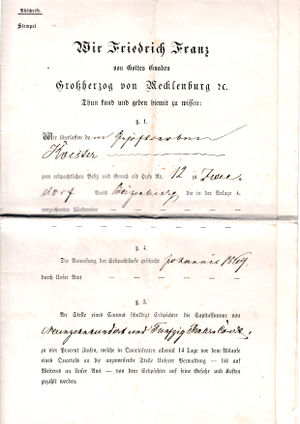 Abschrift.
Stempel
Wir Friedrich Franz
von Gottes Gnaden
Großherzog von Mecklenburg ꝛc.
Thun kund und geben hiemit zu wissen:
§ 1.
Wir überlassen de
zum erbpachtlichen Besitz und Genuß als Hufe Nr. 12 zu Zwee
dorf Amts Boizenburg die in der Anlage A.
verzeichneten Ländereien
§ 2.
Die Anweisung der Erbpachthufe geschieht Johannis
durch Unser Amt
§ 3.
An Stelle eines Canons schuldigt Erbpächter die Capitalsumme von
Neunzehnhundert und Funfzig Thaler Court
zu vier Procent Zinsen, welche in Quartalraten allemal 14 Tage vor dem Ablaufe
eines Quartals an die anzuweisende Stelle Unserer Verwaltung — bis auf
Weiteres an Unser Amt — von dem Erbpächter auf seine Gefahr und Kosten
gezahlt werden.